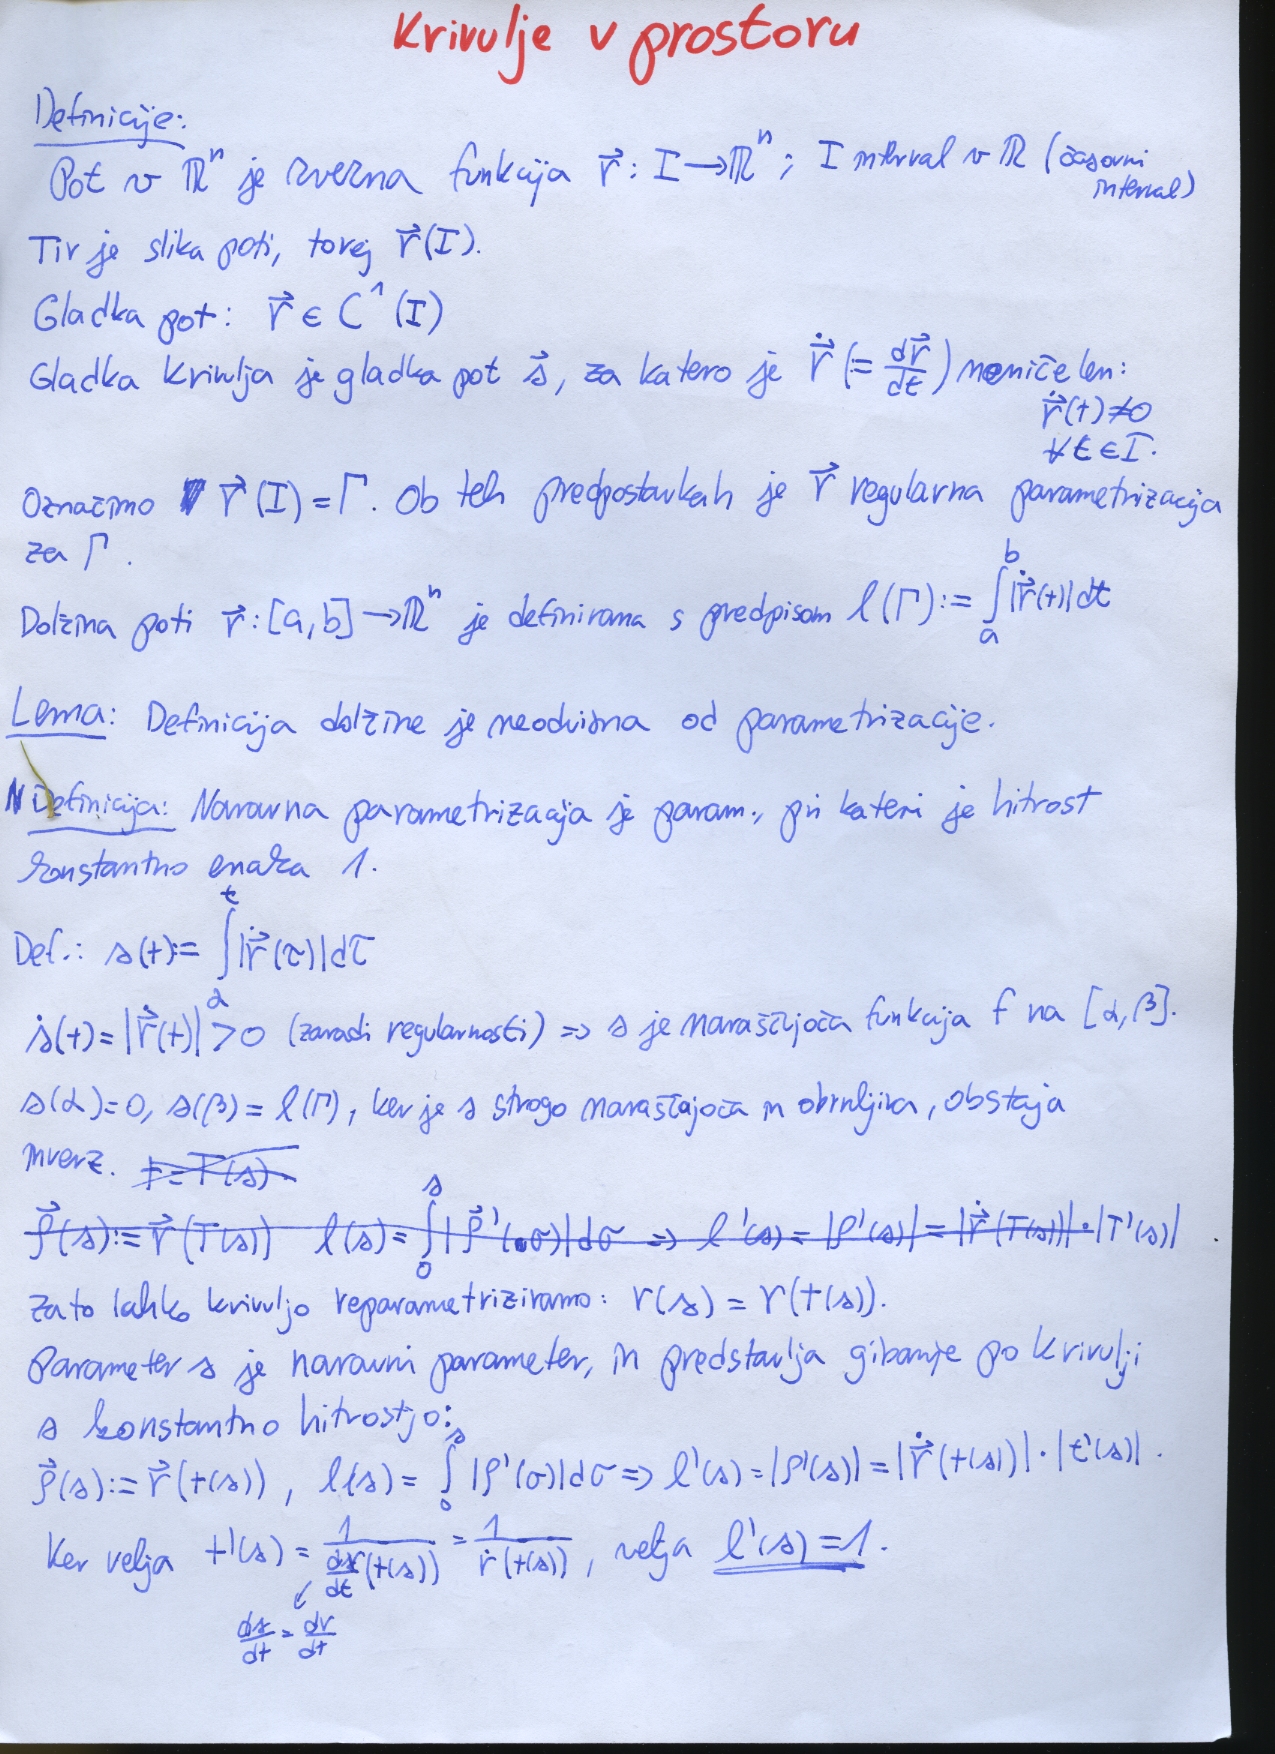 Krivulje v prostoru
Definicije:
Pot v ℝⁿ je zvezna funkcija r⃗: I → ℝⁿ; I interval v ℝ (časovni
interval)
Tir je slika poti, torej r⃗(I).
Gladka pot: r⃗ ∈ C¹(I)
Gladka krivulja je gladka pot s⃗, za katero je r⃗̇ (= dr⃗/dt) neničelen:
r⃗̇(t) ≠ 0
∀t ∈ I.
Označimo r⃗(I) = Γ. Ob teh predpostavkah je r⃗ regularna parametrizacija
za Γ.
Dolžina poti r⃗: [a, b] → ℝⁿ je definirana s predpisom l(Γ) := ∫ₐᵇ |r⃗̇(t)| dt
Lema: Definicija dolžine je neodvisna od parametrizacije.
Definicija: Naravna parametrizacija je param., pri kateri je hitrost
konstantno enaka 1.
Def.: s(t) := ∫_α^t |r⃗̇(τ)| dτ
ṡ(t) = |r⃗̇(t)| > 0 (zaradi regularnosti) ⇒ s je naraščujoča funkcija f na [α, β].
s(α) = 0, s(β) = l(Γ), ker je s strogo naraščajoča in obrnljiva, obstaja
inverz. t = T(s)
ρ⃗(s) := r⃗(T(s)) l(s) = ∫₀ˢ |ρ⃗'(σ)| dσ ⇒ l'(s) = |ρ'(s)| = |r⃗̇(T(s))| · |T'(s)|
zato lahko krivuljo reparametriziramo: r(s) = r(t(s)).
Parameter s je naravni parameter, in predstavlja gibanje po krivulji
s konstantno hitrostjo:
ρ⃗(s) := r⃗(t(s)), l(s) = ∫₀ˢ |ρ'(σ)| dσ ⇒ l'(s) = |ρ'(s)| = |r⃗̇(t(s))| · |t'(s)|.
Ker velja t'(s) = 1/(ds/dt (t(s))) = 1/ṙ(t(s)), velja l'(s) = 1.
ds/dt = dr/dt